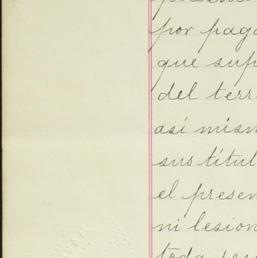 por paga
que sup
del terr
así mism
sustitut
el presen
ni lesion
toda